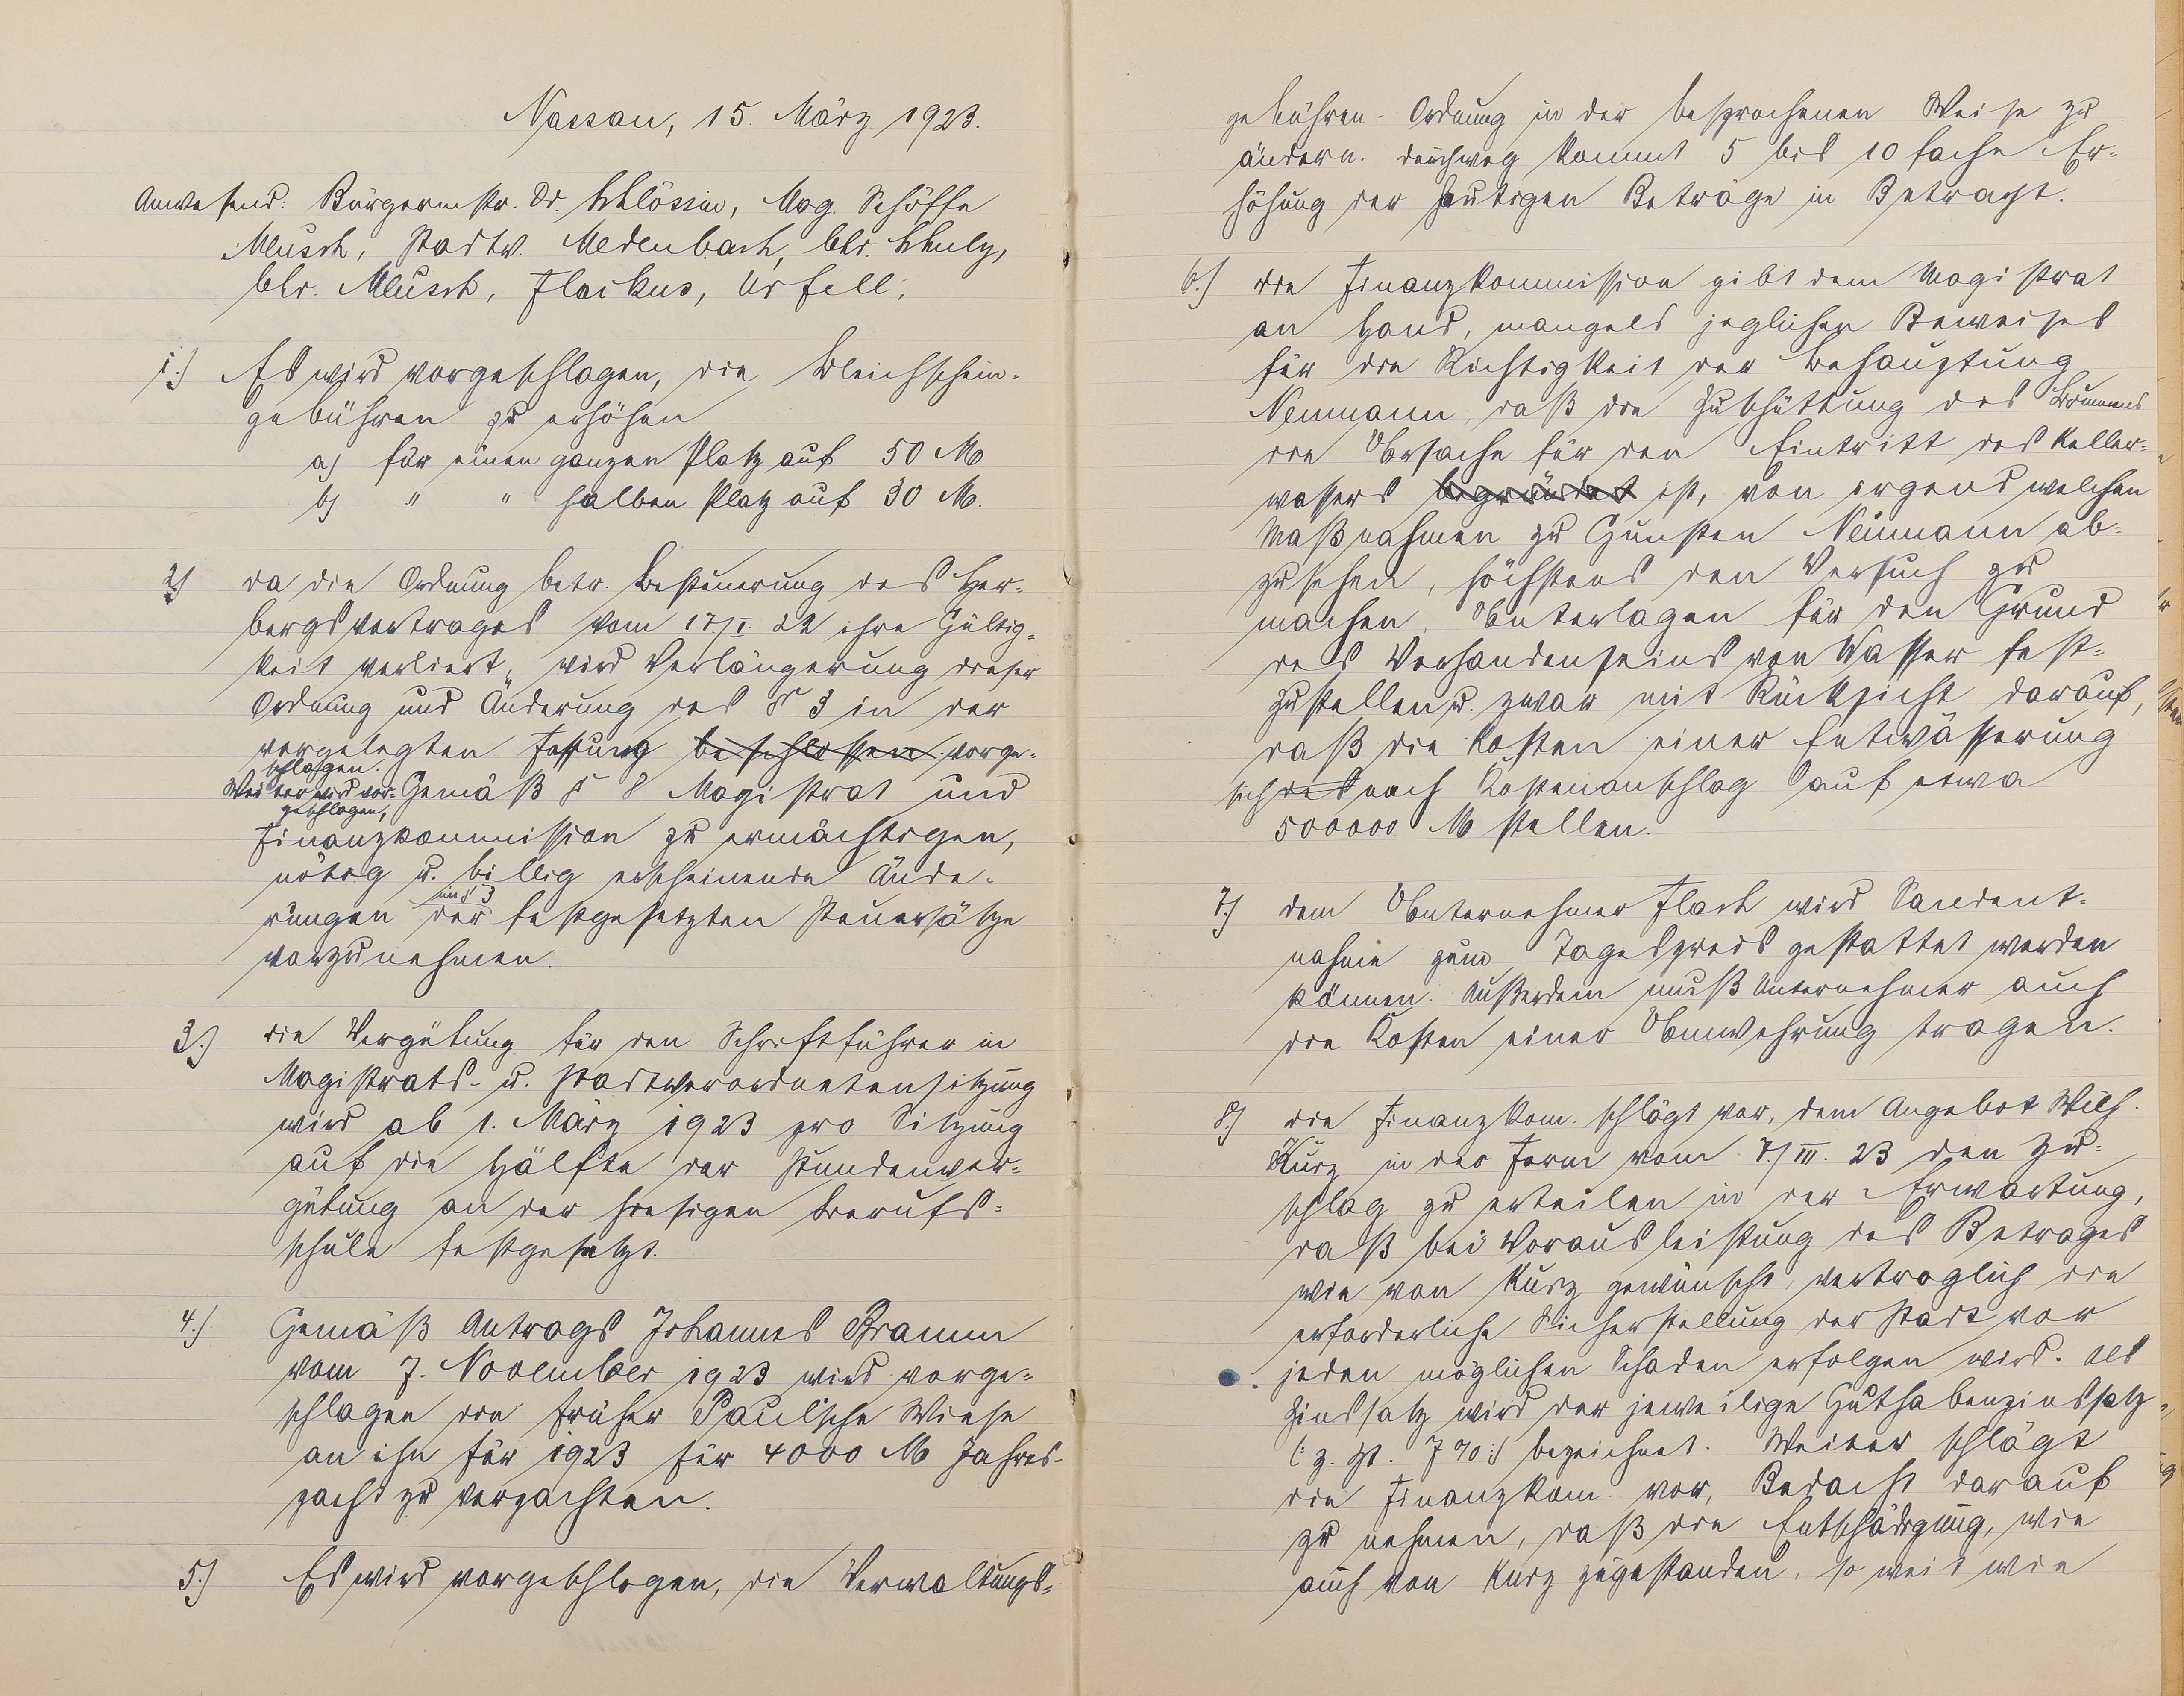 Nassau, 15. März 1923.
Anwesend: Bürgermstr. Dr. Schlössin, Mag. Schöffe
Müsch, Stadtv. Medenbach, Chr. Schulz,
Chr. Müsch, Flackus, Urfell.
1.) Es wird vorgeschlagen, die Bleichschein-
gebühren zu erhöhen
a) für einen ganzen Platz auf 50 M
b) " " halben Platz auf 30 M.
2) Da die Ordnung betr. Besteuerung des Her-
bergsvertrages vom 17/I. 22 ihre Gültig-
keit verliert, wird Verlängerung dieser
Ordnung und Änderung des § 3 in der
vorgelegten Fassung beschlossen vorge-
schlagen.
Weiter wird vor- Gemäß § 8 Magistrat und
geschlagen,
Finanzkommission zu ermächtigen,
nötig u. billig erscheinende Ände-
im § 3
rungen der festgesetzten Steuersätze
vorzunehmen.
3.) Die Vergütung für den Schriftführer in
Magistrats- u. Stadtverordnetensitzung
wird ab 1. März 1923 pro Sitzung
auf die Hälfte der Stundenver-
gütung an der hiesigen Berufs-
schule festgesetzt.
4.) Gemäß Antrags Johannes Bramm
vom 7. November 1923 wird vorge-
schlagen die früher Paul'sche Wiese
an ihn für 1923 für 4000 M Jahres-
pacht zu verpachten.
5.) Es wird vorgeschlagen, die Verwaltungs-
gebühren-Ordnung in der besprochenen Weise zu
ändern. Durchweg kommt 5 bis 10 fache Er-
höhung der heutigen Beträge in Betracht.
6.) Die Finanzkommission gibt dem Magistrat
an Hand, mangels jeglichen Beweises
für die Richtigkeit der Behauptung
Neumann, daß die Zuschüttung des Brunnens
die Ursache für den Eintritt des Keller-
wassers begründet ist, von irgend welchen
Maßnahmen zu Gunsten Neumann ab-
zusehen, höchstens den Versuch zu
machen, Unterlagen für den Grund
des Vorhandenseins von Wasser fest-
zustellen u. zwar mit Rücksicht darauf,
daß die Kosten einer Entwässerung
sich nach Kostenanschlag auf etwa
500000 M stellen.
7.) Dem Unternehmer Flach wird Sandent-
nahme zum Tagespreis gestattet werden
können. Außerdem muß Unternehmer auch
die Kosten einer Umwehrung tragen.
8.) Die Finanzkom. schlägt vor, dem Angebot Wilh.
Kurz in der Form vom 7./III. 23 den Zu-
schlag zu erteilen in der Erwartung,
daß bei Vorausleistung des Betrages
wie von Kurz gewünscht, vertraglich die
erforderliche Sicherstellung der Stadt vor
jeden möglichen Schaden erfolgen wird. Als
Zinssatz wird der jeweilige Guthabenzinssatz
(: z. Zt. 7 % :) bezeichnet. Weiter schlägt
die Finanzkom. vor, Bedacht darauf
zu nehmen, daß die Entschädigung, wie
auch von Kurz zugestanden, so weit wie